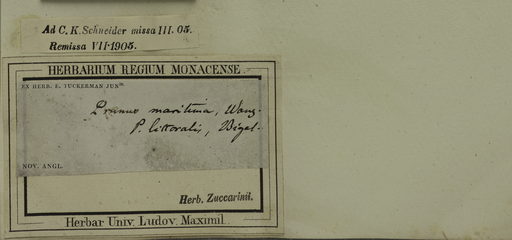 Ad C. K. Schneider missa III. 05.
Remissa VII-1905.
HERBARIUM REGIUM MONACENSE.
EX HERB. E. TUCKERMAN JUNᴿ.
Prunus maritima, Wang.
P. littoralis, Bigel.
NOV. ANGL.
Herb. Zuccarinii.
Herbar Univ. Ludov. Maximil.